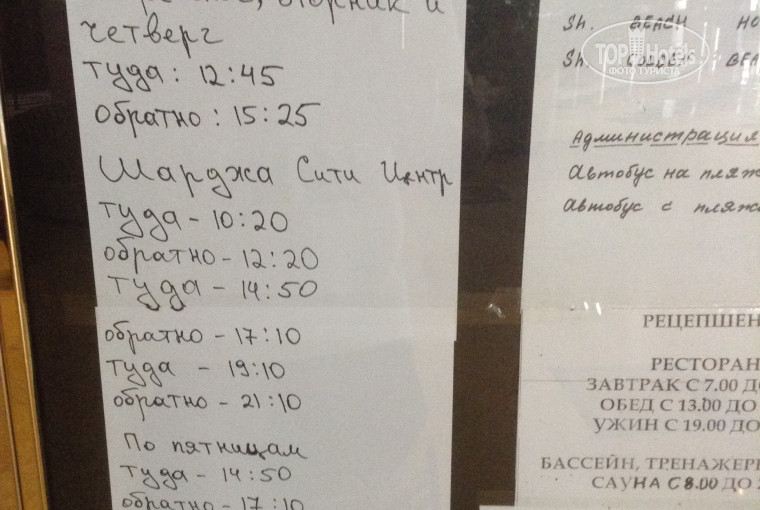 вторник и
четверг
туда: 12:45
обратно: 15:25
Шарджа Сити Центр
туда - 10:20
обратно - 12:20
туда - 14:50
обратно - 17:10
туда - 19:10
обратно - 21:10
По пятницам
туда - 14:50
обратно - 17:10
Sh. BEACH HO
Sh. GOLDEN BEA
TOPHotels
ФОТО ТУРИСТА
Администрация
Автобус на пляж
Автобус с пляж
РЕЦЕПШЕН
РЕСТОРАН
ЗАВТРАК С 7.00 ДО
ОБЕД С 13.00 ДО
УЖИН С 19.00 ДО
БАССЕЙН, ТРЕНАЖЕР
САУНА С 8.00 ДО